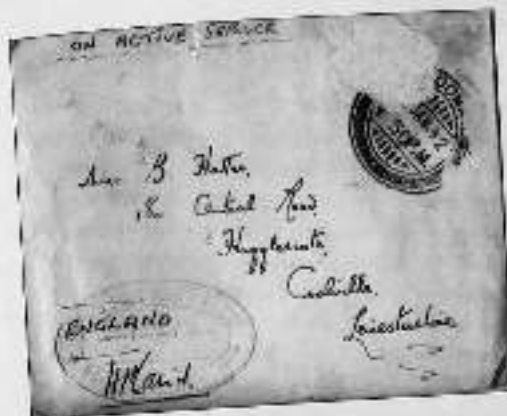 ON ACTIVE SERVICE
Miss B
Central Road
Hugglescote,
Coalville,
Leicestershire
ENGLAND